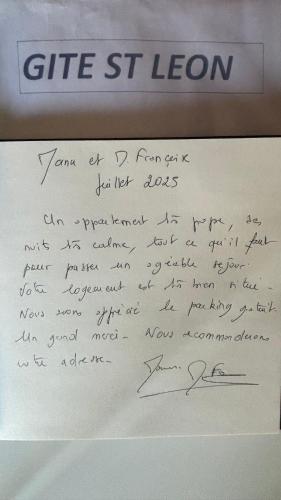 GITE ST LEON
Manu et D. Françoise
Juillet 2025
Un appartement très propre, des
nuits très calme, tout ce qu'il faut
pour passer un agréable séjour.
Votre logement est très bien situé -
Nous avons apprécié le parking gratuit.
Un grand merci - Nous recommanderons
votre adresse -